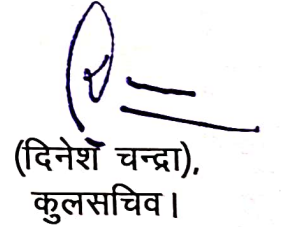 (दिनेश चन्द्रा),
कुलसचिव।